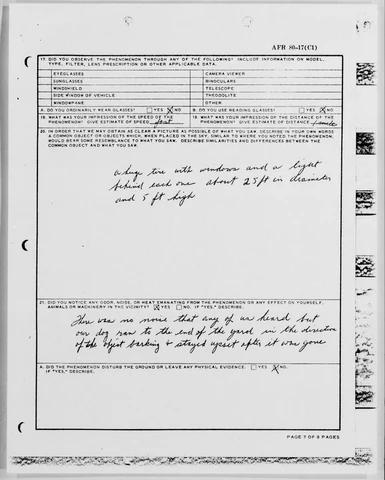 AFR 80-17(C1)
17. DID YOU OBSERVE THE PHENOMENON THROUGH ANY OF THE FOLLOWING? INCLUDE INFORMATION ON MODEL, TYPE, FILTER, LENS PRESCRIPTION OR OTHER APPLICABLE DATA.
EYEGLASSES CAMERA VIEWER
SUNGLASSES BINOCULARS
WINDSHIELD TELESCOPE
SIDE WINDOW OF VEHICLE THEODOLITE
WINDOWPANE OTHER
A. DO YOU ORDINARILY WEAR GLASSES? YES NO B. DO YOU USE READING GLASSES? YES NO
18. WHAT WAS YOUR IMPRESSION OF THE SPEED OF THE PHENOMENON? GIVE ESTIMATE OF SPEED fast
19. WHAT WAS YOUR IMPRESSION OF THE DISTANCE OF THE PHENOMENON? GIVE ESTIMATE OF DISTANCE
20. IN ORDER THAT WE MAY OBTAIN AS CLEAR A PICTURE AS POSSIBLE OF WHAT YOU SAW, DESCRIBE IN YOUR OWN WORDS
A COMMON OBJECT OR OBJECTS WHICH, WHEN PLACED IN THE SKY, SIMILAR TO WHERE YOU NOTED THE PHENOMENON,
WOULD BEAR SOME RESEMBLANCE TO WHAT YOU SAW. DESCRIBE SIMILARITIES AND DIFFERENCES BETWEEN THE
COMMON OBJECT AND WHAT YOU SAW.
a huge tire with windows and a light
behind each one about 25 ft in diameter
and 5 ft high
21. DID YOU NOTICE ANY ODOR, NOISE, OR HEAT EMANATING FROM THE PHENOMENON OR ANY EFFECT ON YOURSELF,
ANIMALS OR MACHINERY IN THE VICINITY? YES NO. IF "YES," DESCRIBE.
There was no noise that any of us heard but
our dog ran to the end of the yard in the direction
of the object barking + stayed upset after it was gone
A. DID THE PHENOMENON DISTURB THE GROUND OR LEAVE ANY PHYSICAL EVIDENCE. YES NO.
IF "YES," DESCRIBE.
PAGE 7 OF 9 PAGES